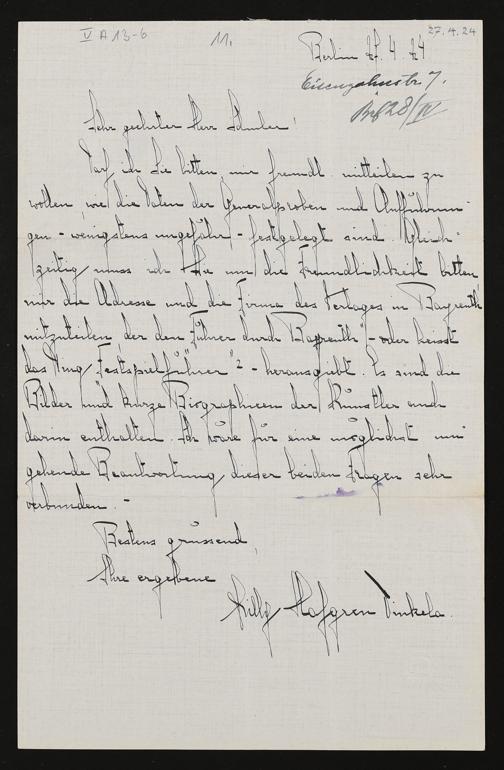 V A 13-6
11.
27.4.24
Berlin 27. 4. 24
Eisenzahnstr 7.
Brf 28/IV
Sehr geehrter Herr Schuler!
Darf ich Sie bitten, mir freundl. mitteilen zu
wollen, wie die Daten der Generalproben und Aufführun-
gen - wenigstens ungefähr - festgelegt sind. Gleich-
zeitig muss ich Sie um die Freundlichkeit bitten
mir die Adresse und die Firma des Verlages in Bayreuth
mitzuteilen, der den "Führer durch Bayreuth" - oder heisst
das Ding "Festspielführer"? - herausgiebt. Es sind die
Bilder und kurze Biographieen der Künstler auch
darin enthalten. Ich wäre für eine möglichst um-
gehende Beantwortung dieser beiden Fragen sehr
verbunden. -
Bestens grüssend,
Ihre ergebene
Lilly Hafgren Dinkela.